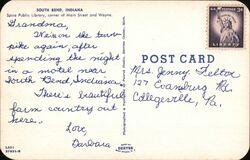 SOUTH BEND, INDIANA
Spiro Public Library, corner of Main Street and Wayne.
Grandma,
We're on the turn-
pike again, after
spending the night
in a motel near
South Bend, Indiana.
There's beautiful
farm country out
here.
Love,
Barbara
POST CARD
Mrs. Jenny Felton
127 Evansburg Rd.
Collegeville, Pa.
U.S. POSTAGE 3¢
LIBERTY
DEXTER